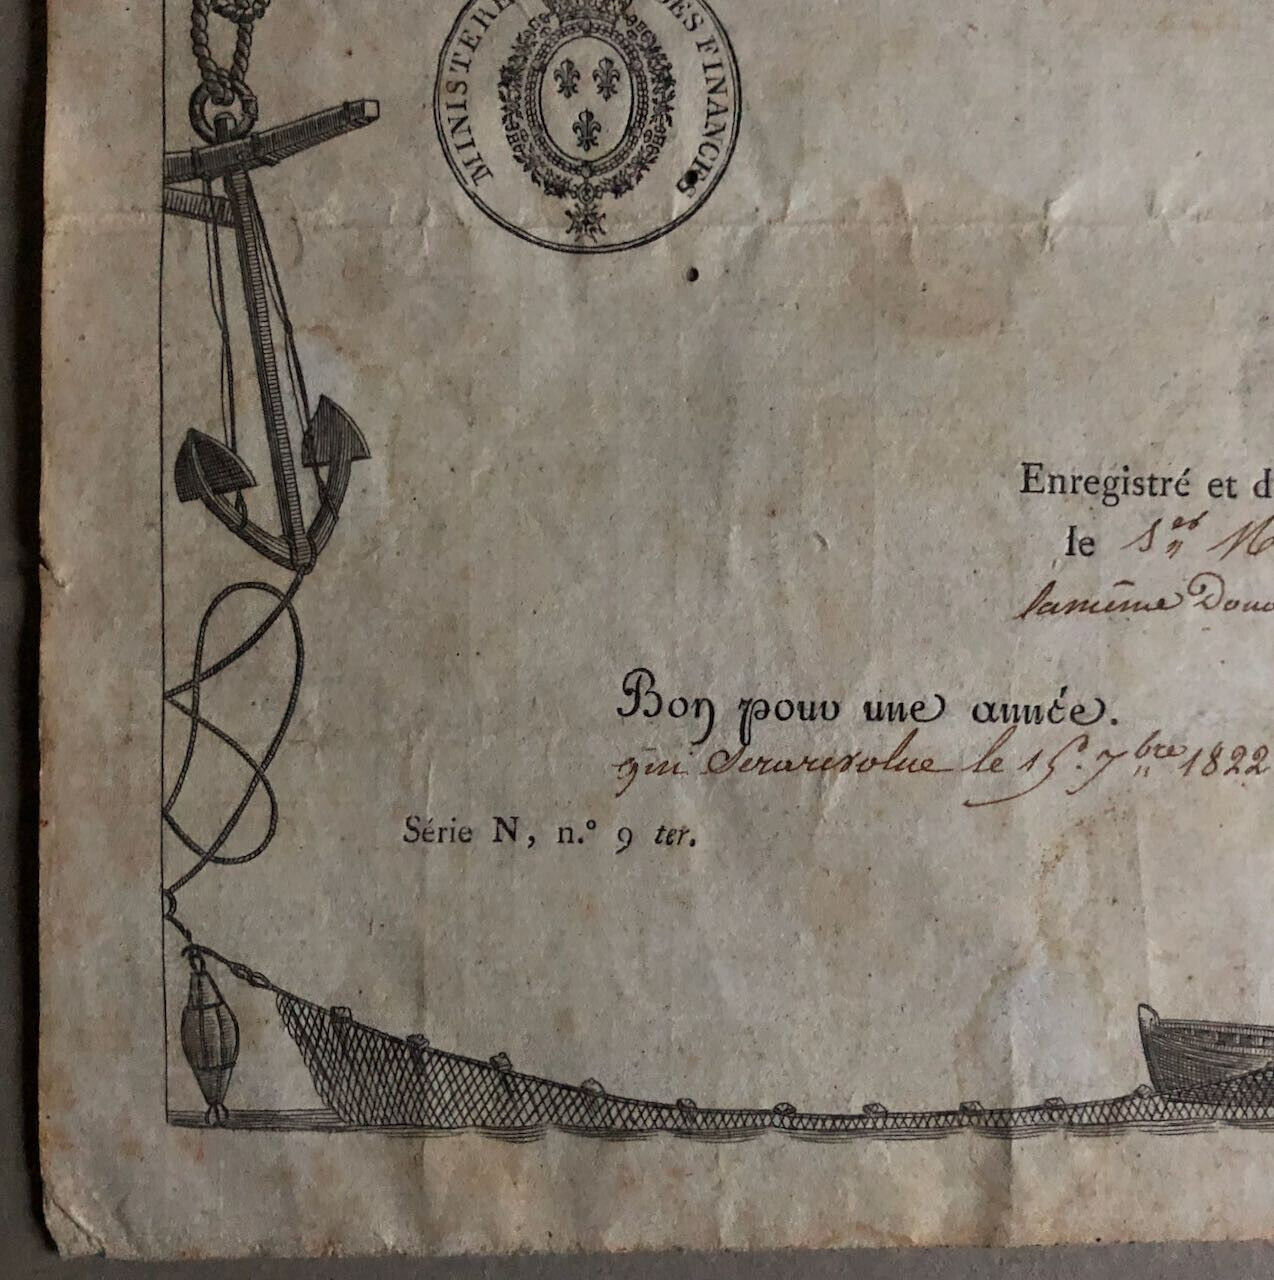 MINISTERE DES FINANCES
Enregistré et d
le
la même Doua
Bon pour une année.
qui sera revolue le 15. 7.bre 1822
Série N, n.° 9 ter.